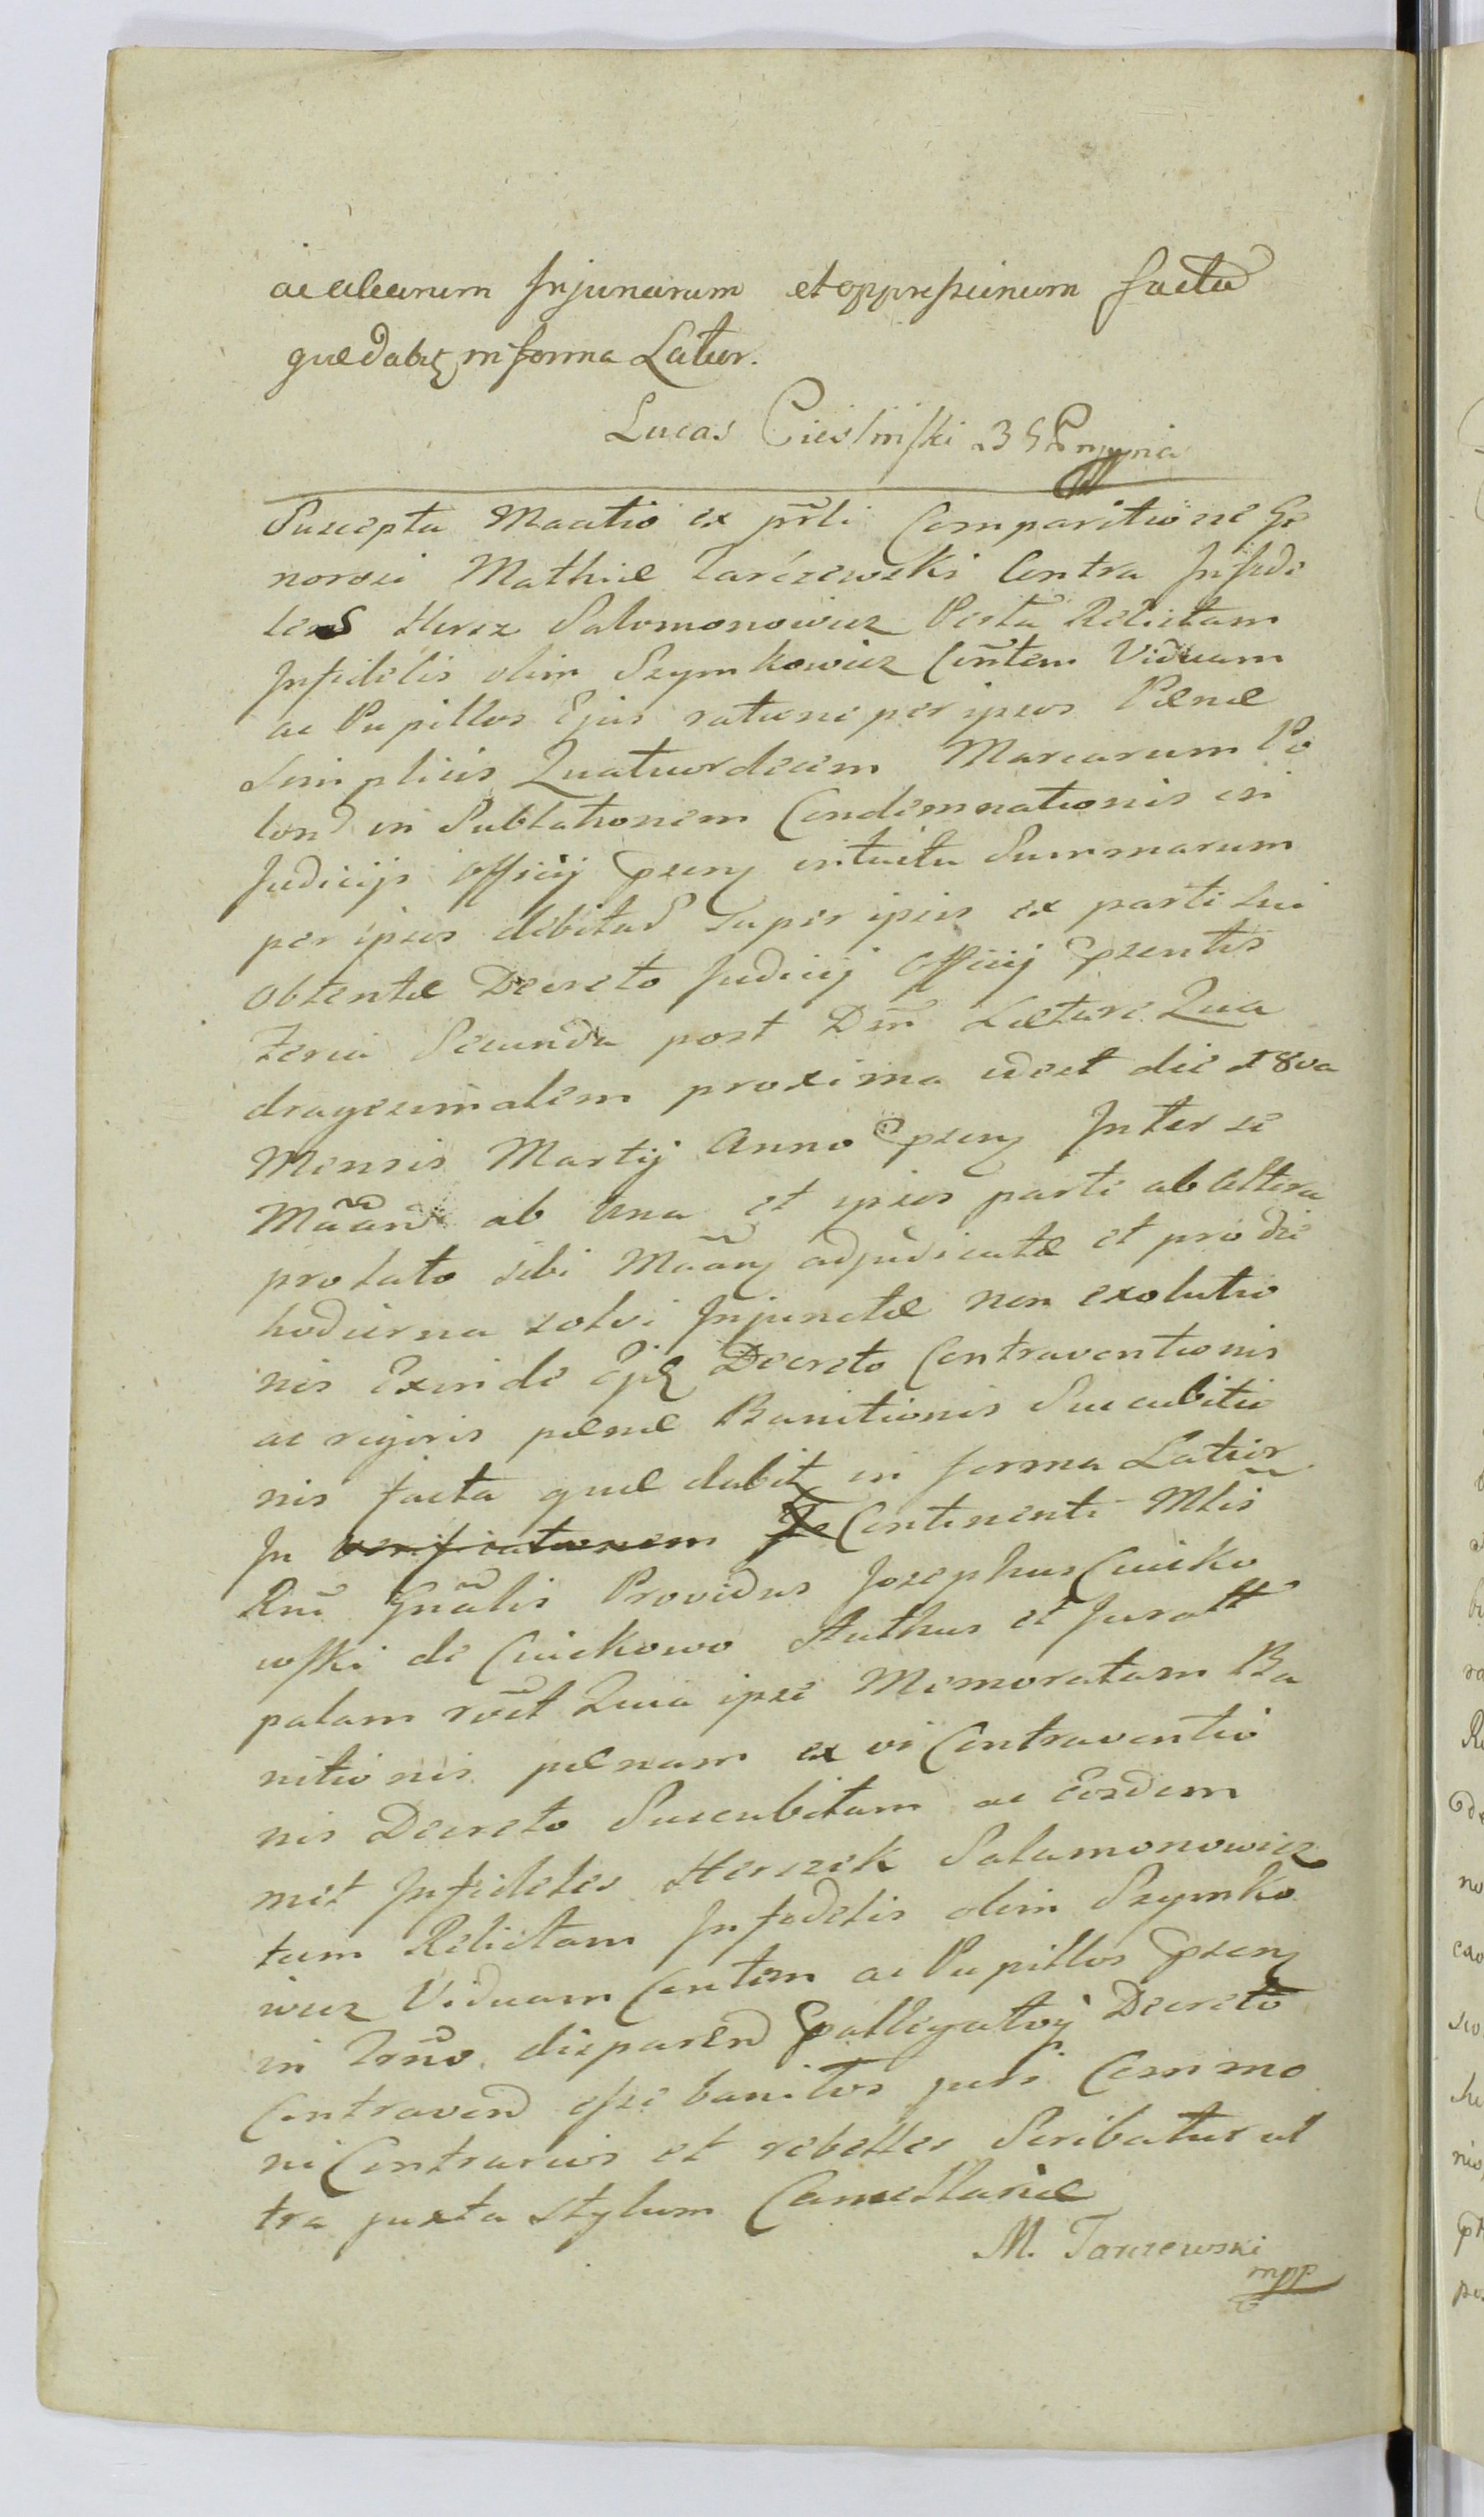 ac aliarum Injuriarum et oppressionum facta
quæ dabitur in forma Latior.
Lucas Ciesliński
Suscepta Maãtio ex pr̃li Comparitione Ge
nerosi Mathiæ Tarczewski Contra Infide
les Hersz Salomonowicz Relictam
Infidelis olim Szymkowicz Cñtem Viduam
ac Pupillos Ejus ratione per ipsos Pænæ
Simplicis Quatuordecim Marcarum Po
lon in Sublationem Condemnationis in
Judicijs Officij psenz intuitu Summarum
per ipsos debitar super ipsis ex parte sui
obtentæ Decreto Judicij Officij psentis
Feria Secunda post Dñi Lætare Qua
dragesimalem proxima idest die 18va
Mensis Martij Anno psenz Inter se
Mããn ab una et ipsos parte ab altera
prolato sibi Mãanz adjudicatæ et pro die
hodierna solvi Injunctæ non exolutio
nis Exinde Ejz Decreto Contraventionis
ac rigoris pænæ Banitionis Succubitio
nis facta quæ dabitz in forma Latior
In verificationem Continenti Mlis
Rñi Gñalis Providus Josephus Cwieko
wski de Cwiekowo Authus et Juratt
palam rõit Quia ipse Memoratam Ba
nitionis pænam ex vi Contraventio
nis Decreto Succubitam ac Eosdem
met Infideles Herszek Salamonowicz
tum Relictam Infidelis olim Szymko
wicz Viduam Contem ac Pupillos psenz
in Trño disparen pallegatoz Decreto
Contraven esse banitos juri Commo
ni Contrarios et rebelles Scribatur ul
tra juxta Stylum Cancellariæ
M. Tarczewski
mpp